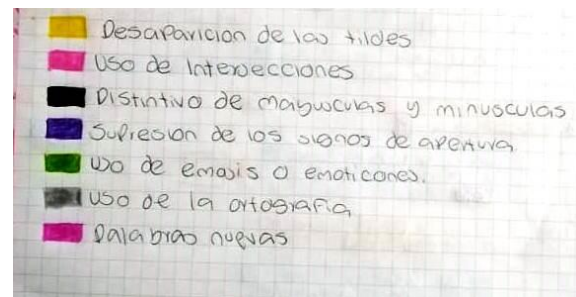 Desaparicion de las tildes
Uso de Intersecciones
Distintivo de mayusculas y minusculas
Supresion de los signos de apertura.
Uso de emojis o emoticones.
Uso de la ortografia
Palabras nuevas